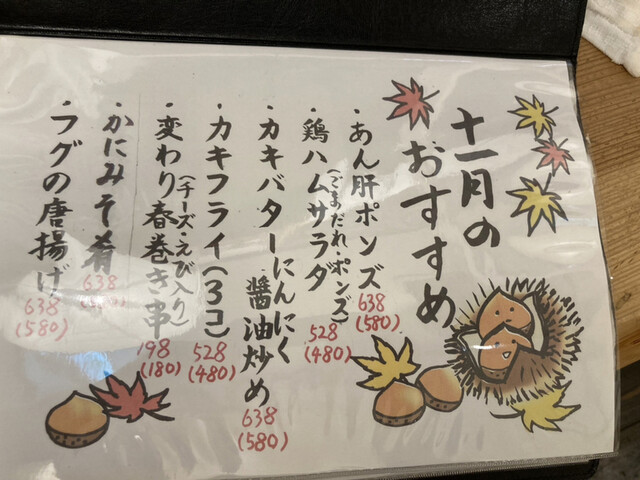 十一月の
おすすめ
・あん肝ポンズ
638
(580)
・鶏ハムサラダ
(ごまだれ・ポンズ)
528
(480)
・カキバターにんにく
醤油炒め
638
(580)
・カキフライ(3コ)
528
(480)
・変わり春巻き串
(チーズ・えび入り)
198
(180)
・かにみそ肴
638
(580)
・フグの唐揚げ
638
(580)